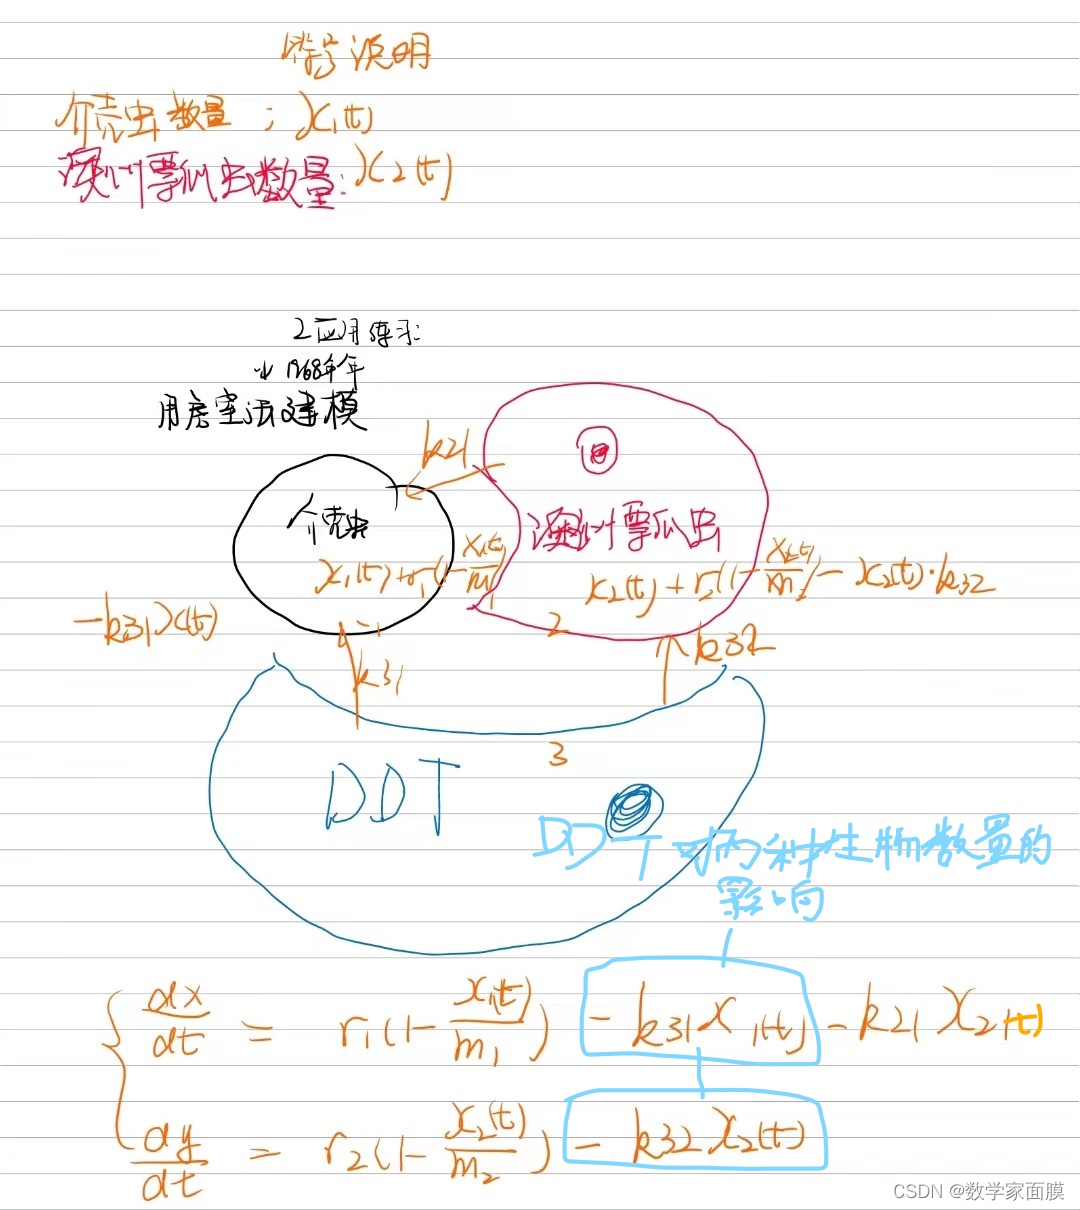 符号说明
介壳虫数量:x₁(t)
澳洲瓢瓜虫数量:x₂(t)
2应用练习:
1968年
用房室法建模
k21
介壳虫
澳洲瓢瓜虫
x₁(t)+r₁(1-x₁(t)/m₁)
x₂(t)+r₂(1-x₂(t)/m₂)-x₂(t)·k32
-k31x(t)
1
2
k31
k32
3
DDT
DDT对两种生物数量的
影响
dx/dt = r₁(1-x₁(t)/m₁)-k31x₁(t)-k21x₂(t)
dy/dt = r₂(1-x₂(t)/m₂)-k32x₂(t)
CSDN @数学家面膜